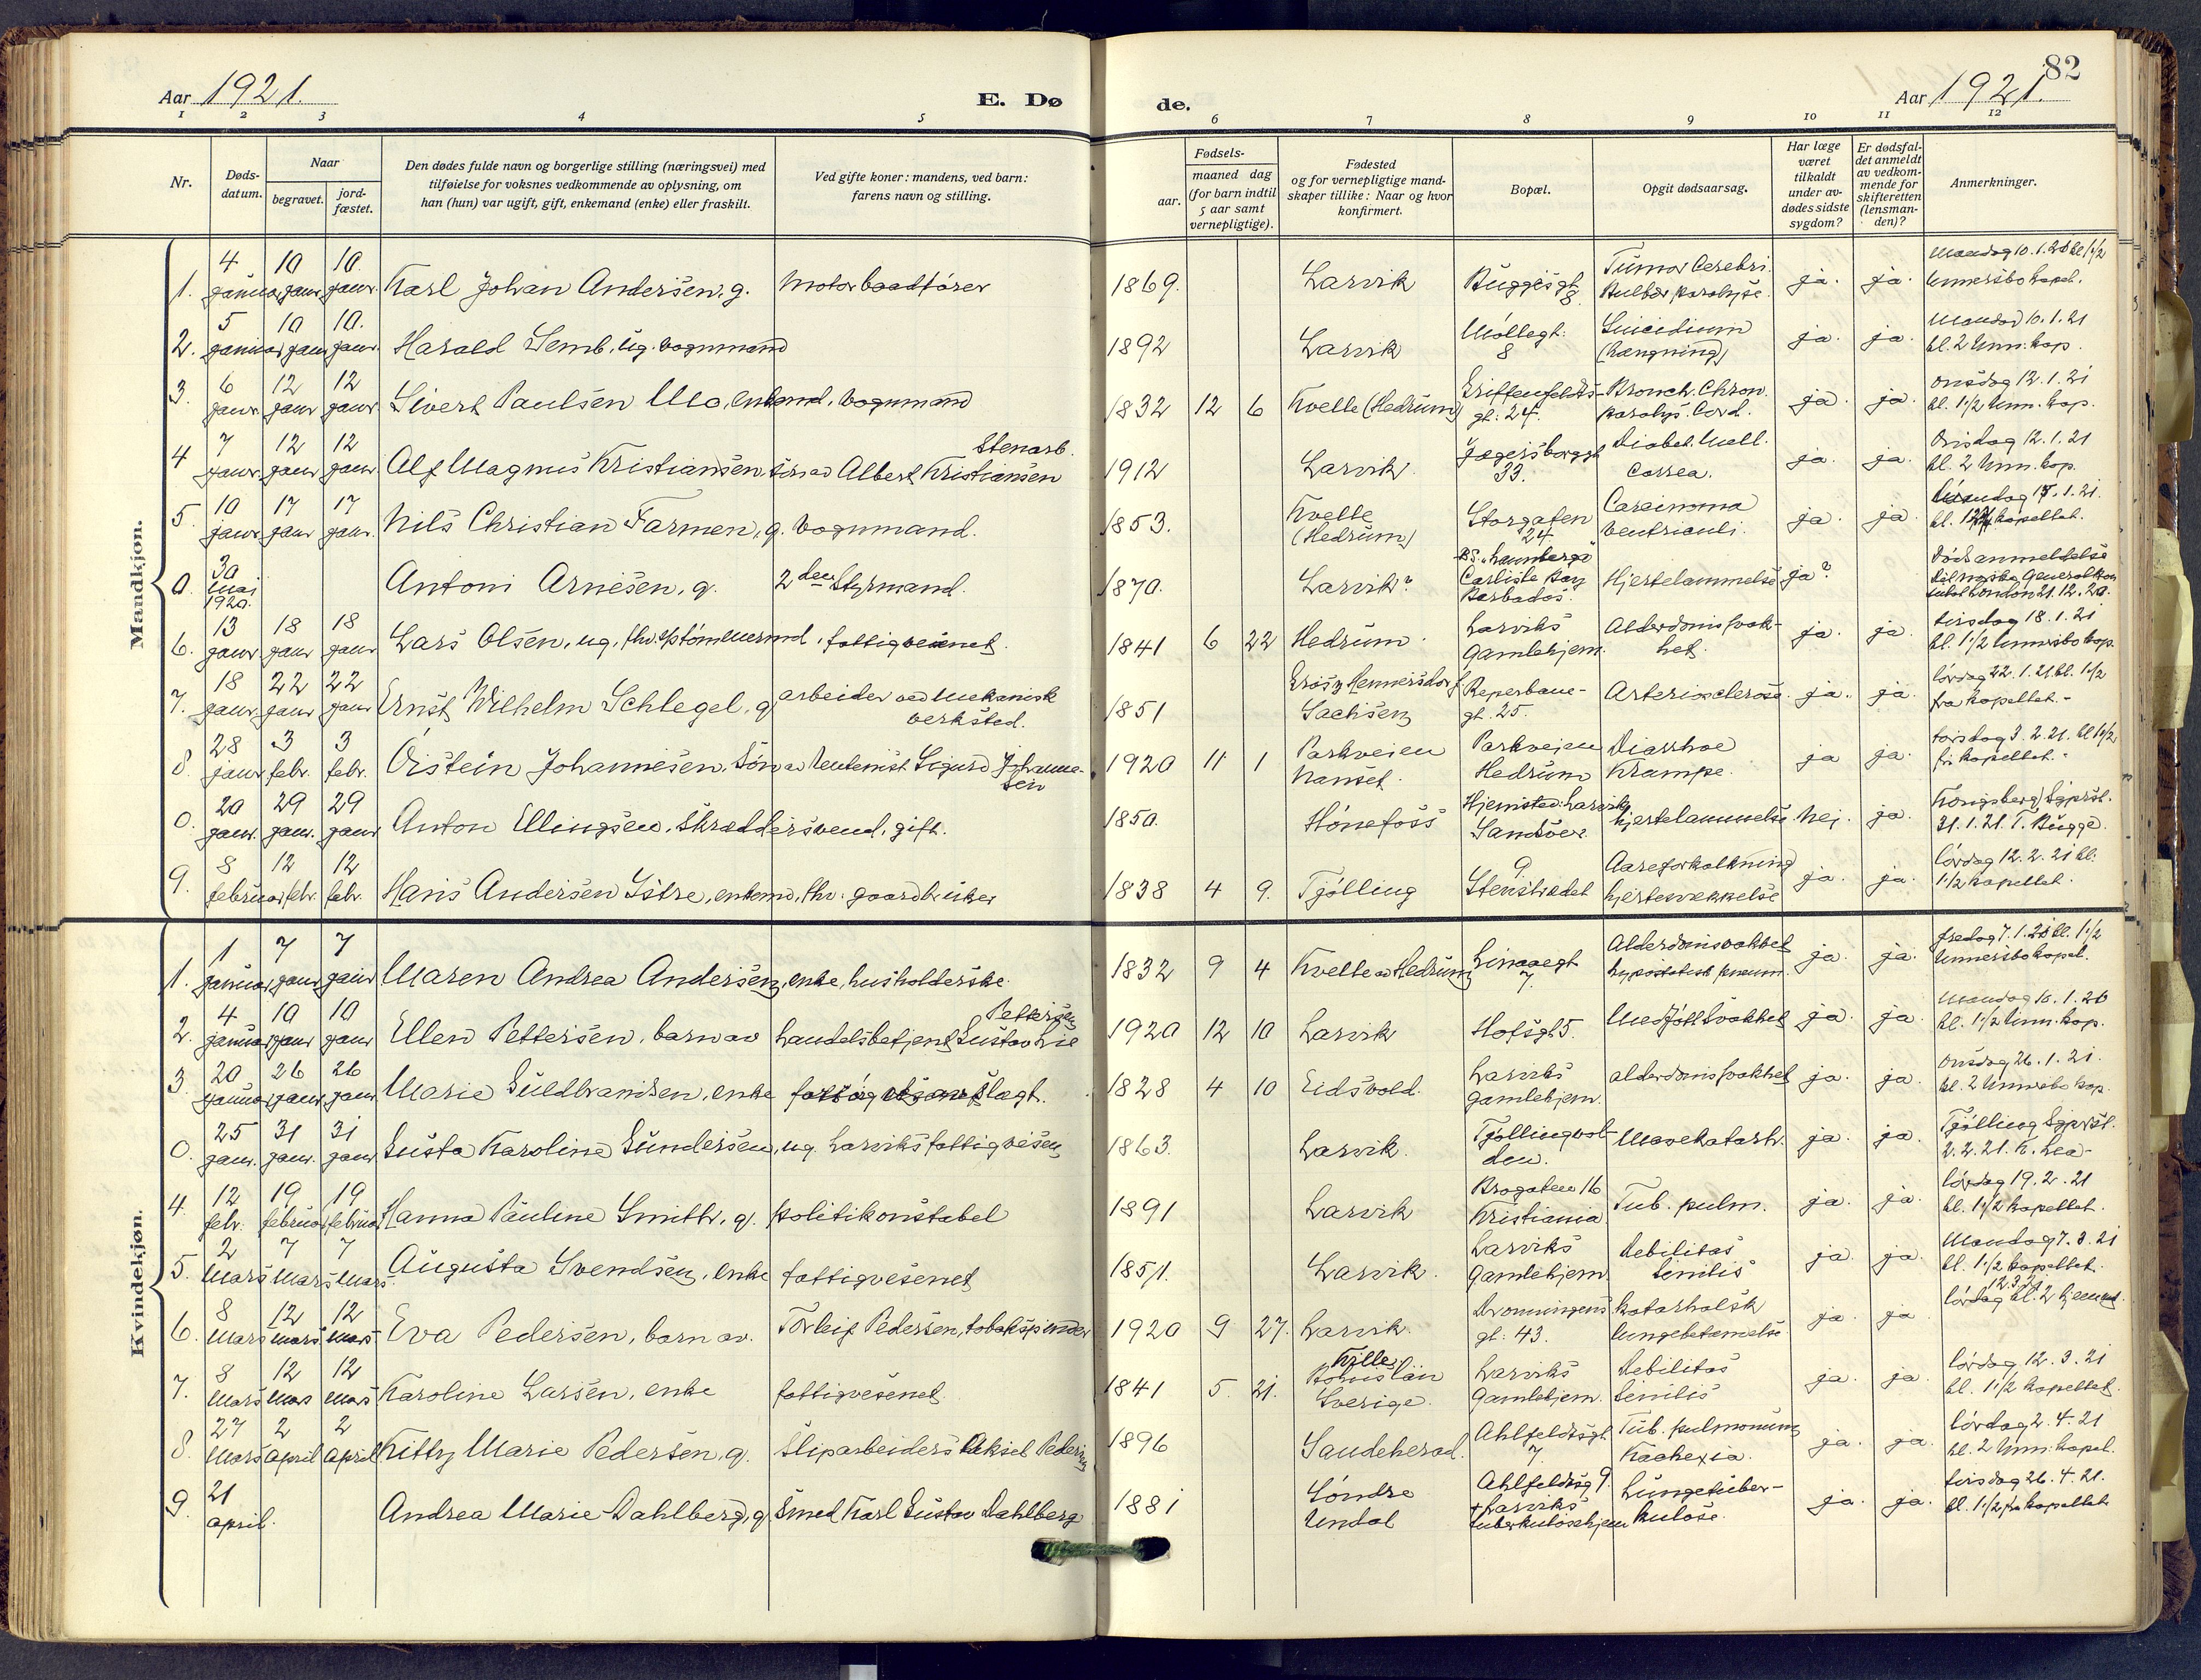 82
Aar 1921.
E. Dø
de.
Aar 1921.
1 2 3 4 5 6 7 8 9 10 11 12
Nr.
Døds-
datum.
Naar
begravet.
jord-
fæstet.
Den dødes fulde navn og borgerlige stilling (næringsvei) med
tilføielse for voksnes vedkommende av oplysning, om
han (hun) var ugift, gift, enkemand (enke) eller fraskilt.
Ved gifte koner: mandens, ved barn:
farens navn og stilling.
Fødsels-
aar.
maaned dag
(for barn indtil
5 aar samt
vernepligtige).
Fødested
og for vernepligtige mand-
skaper tillike: Naar og hvor
konfirmert.
Bopæl.
Opgit dødsaarsag.
Har læge
været
tilkaldt
under av-
dødes sidste
sygdom?
Er dødsfal-
det anmeldt
av vedkom-
mende for
skifteretten
(lensman-
den)?
Anmerkninger.
Mandkjøn.
1. 4 januar 10 janur 10. janur. Karl Johan Andersen, g. Motorbaadfører 1869. Larvik Buggesgt 8 Tumor Cerebri. Bulbær paralyse. ja. ja. Mandag 10.1.21 kl 1 1/2 Unnersbo kapel.
2. 5 januar 10 janur 10. janur. Harald Semb, ug. vognmand 1892 Larvik Møllegt. 8 Suicidium (hængning) ja. ja. Mandag 10.1.21 kl. 2 Unn. kap.
3. 6 janur. 12 janur 12 janur Sivert Paulsen Mo, enkemd, vognmand 1832 12 6 Kvelle (Hedrum) Griffenfeldts- gt. 24. Bronch. Chron. paralys. Cord. ja. ja. onsdag 12.1.21 kl. 1 1/2 Unn. kap.
4 7 januar. 12 janur 12 januar. Alf Magnus Kristiansen, søn av Stenarb. Albert Kristiansen 1912 Larvik. Jegersborggt 33. Diabet. Mell. ja. ja. Onsdag 12.1.21 kl. 2 Unn. kap.
5. 10 januar. 17 januar 17 januar. Nils Christian Farmen, g. vognmand. 1853. Kvelle (Hedrum) Storgaten 24. Carcinoma Ventriculi. ja. ja. kapellet.
0. 30 mai 1920. Antoni Arnesen, g. 2den Styrmand. 1870. Larvik? Carliste bay Barbados. Hjertelammelse ja? Dødsanmeldelse London 21.12.20.
6. 13 januar 18 januar 18 januar Lars Olsen, ug., fhv. tømmermd, fattigvæsenet. 1841 6 22 Hedrum. Larviks Gamlehjem. Alderdomssvak- het. ja. ja. tirsdag 18.1.21 kl. 1 1/2 Unnersbo kap.
7. 18 januar. 22 januar 22 januar Ernst Wilhelm Schlegel, g. arbeider ved Mekanisk verksted. 1851 Hennersdorf Sachsen Reperbane- gt. 25. Arteriosclerose. ja. ja. lørdag 22.1.21 kl. 1 1/2 fra kapellet.-
8. 28 januar 3 febr. 3 febr. Øistein Johannesen, søn av Sigurd Johanne- sen 1920 11 1 Parkveien Nanset. Parkveien Hedrum Diarrhoe Krampe. ja ja. torsdag 3.2.21. kl 1 1/2 kapellet.-
0. 20 januar. 29 januar. 29 januar Anton Ellingsen, skræddersvend, gift. 1850. Hønefoss Hjemsted: Larvik hjertelammelse. Nej. ja. Kongsberg 31.1.21. T. Bugge.
9. 8 februar 12 febr. 12 febr. Hans Andersen Istre, enkemd, fhv. gaardbruker 1838 4 9. Tjølling 9 Stenstrædet Aareforkalkning hjertesvækkelse ja. ja. lørdag 12.2.21 kl. 1 1/2 kapellet.
Kvindekjøn.
1. 1 januar 7 januar 7 januar Maren Andrea Andersen, enke, husholderske. 1832 9 4 Kvelle av Hedrum Linaaegt 7. Alderdomssvakhet hypostatisk pneum. ja. ja. fredag 7.1.21 kl. 1 1/2 Unnersbo kapel.
2. 4 januar 10 januar 10 januar Ellen Pettersen, barn av handelsbetjent Gustav Lie Pettersen 1920 12 10 Larvik Hofsgt 5. Medfødt svakhet ja. ja. Mandag 10.1.21 kl. 1 1/2 Unn. kap.
3. 20 januar 26 januar 26 januar Marie Guldbrandsen, enke forsørget av slægt. 1828 4 10 Eidsvold. Larviks gamlehjem. alderdomssvakhet ja. ja. Onsdag 26.1.21. kl. 2 Unnersbo kap.
0. 25 januar. 31 januar. 31 januar Gusta Karoline Gundersen, ug. Larviks fattigvæsen 1863. Larvik. Tjøllingvol- den. Mavekatarh. ja. ja. Tjølling 2.2.21. K. Lea-
4. 12 febr. 19 februar 19 februar Hanna Pauline Smith, g. politikonstabel 1891 Larvik Brogaten 16 Kristiania Tub. pulm. ja. ja. lørdag 19.2.21 kl. 1 1/2 kapellet.
5. 2 Mars 7 Mars 7 Mars. Augusta Svendsen, enke fattigvesenet 1851. Larvik. Larviks Gamlehjem. Debilitas Senilis ja. ja. Mandag 7.3.21 kl. 1 1/2 kapellet.
6. 8 Mars 12 mars 12 mars Eva Pedersen, barn av. Torleif Pedersen, tobakspinder 1920 9 27. Larvik. Dronningens gt. 43. katarhalsk lungebetændelse ja. ja lørdag 12.3.21 kl. 2 hjemmet.
7. 8 Mars 12 Mars 12 mars Karoline Larsen, enke fattigvesenet. 1841 5. 21. Sverige. Larviks Gamlehjem. Debilitas Senilis ja. ja. lørdag 12.3.21 kl. 1 1/2 kapellet.
8. 27 Mars 2 April 2 April Kitty Marie Pedersen, g. Sliparbeider Aksel Pedersen 1896 Saudeherad. Ahlfeldtsgt. 7. Tub. pulmonum Kachexia. ja. ja. lørdag 2.4.21 kl. 2 Unn. kapel.
9. 21 april. Andrea Marie Dahlberg, g. Smed Karl Gustav Dahlberg 1881 Søndre Undal Ahlfeldtsg 9. + Larviks tuberkulosehjem Lungetuber- kulose. ja. ja. tirsdag 26.4.21. kl. 1 1/2 fra kapellet